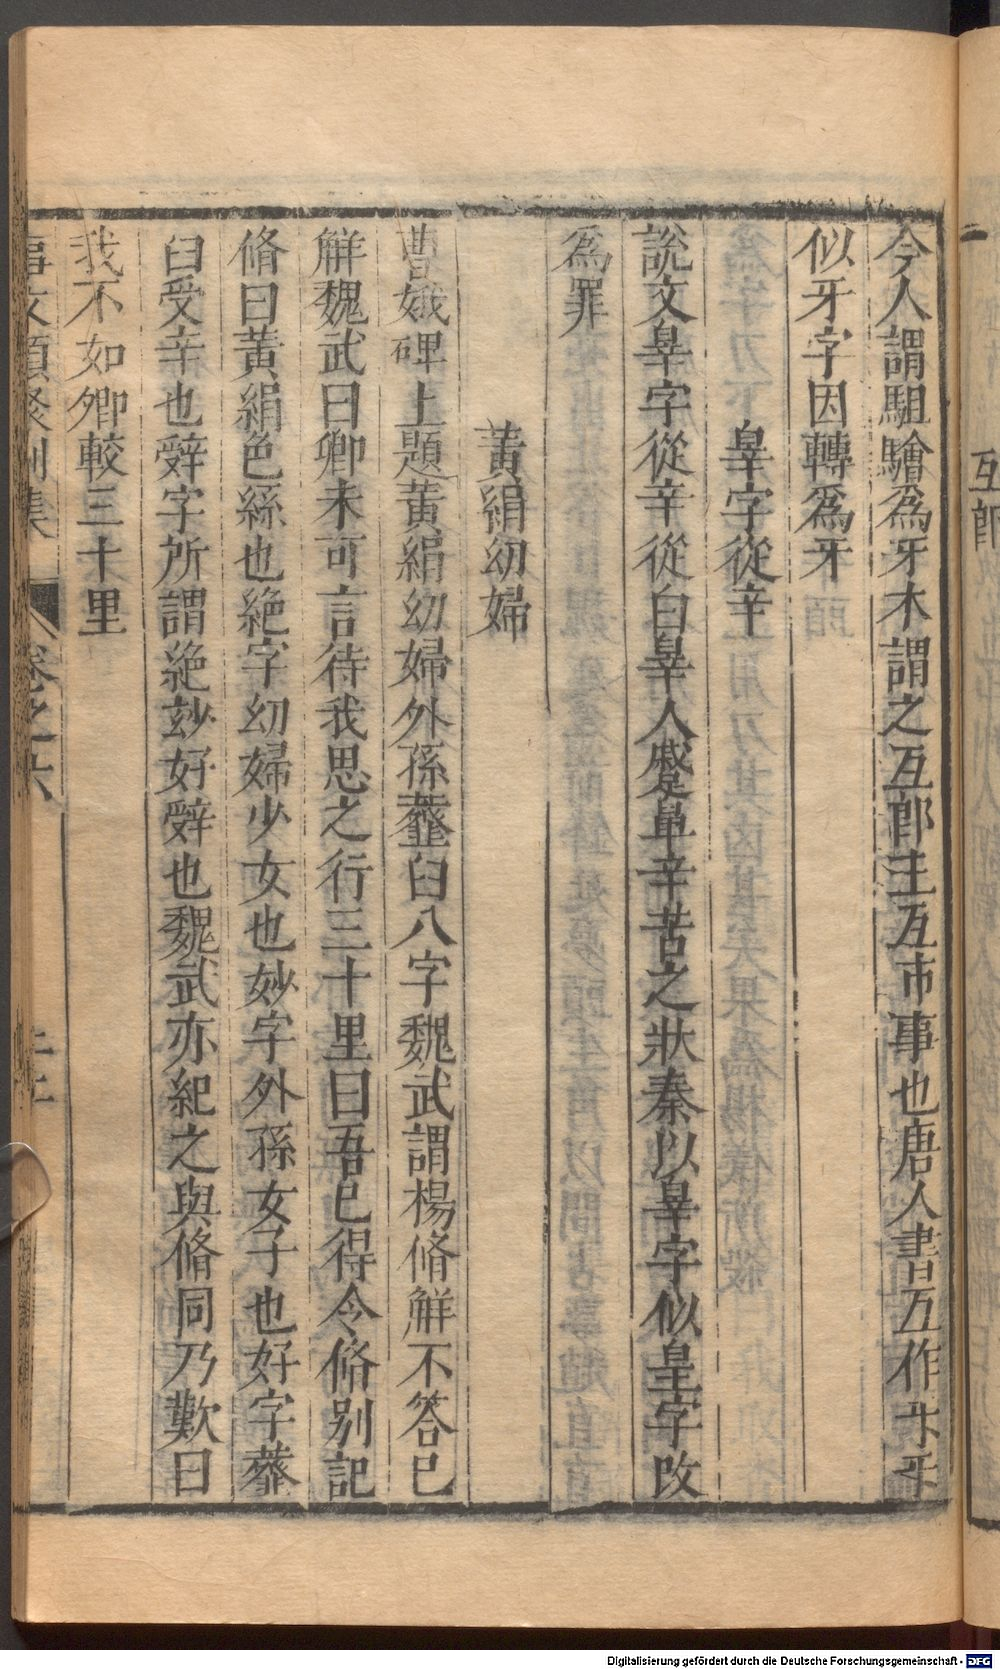 互郎
今人謂駔驓為牙本謂之互郎主互市事也唐人書互作㸦㸦
似牙字因轉爲牙
辠字從辛
説文辠字從辛從自辠人蹙鼻辛苦之狀秦以辠字似皇字改
爲罪
黄絹幼婦
曹娥碑上題黄絹幼婦外孫虀臼八字魏武謂楊脩觧不答巳
觧魏武曰卿未可言待我思之行三十里曰吾已得令脩别記
脩曰黄絹色絲也絶字幼婦少女也妙字外孫女子也好字虀
臼受辛也辤字所謂絶玅好辤也魏武亦紀之與脩同乃歎曰
我不如卿較三十里
事文類聚别集
卷之六
二十
Digitalisierung gefördert durch die Deutsche Forschungsgemeinschaft - DFG